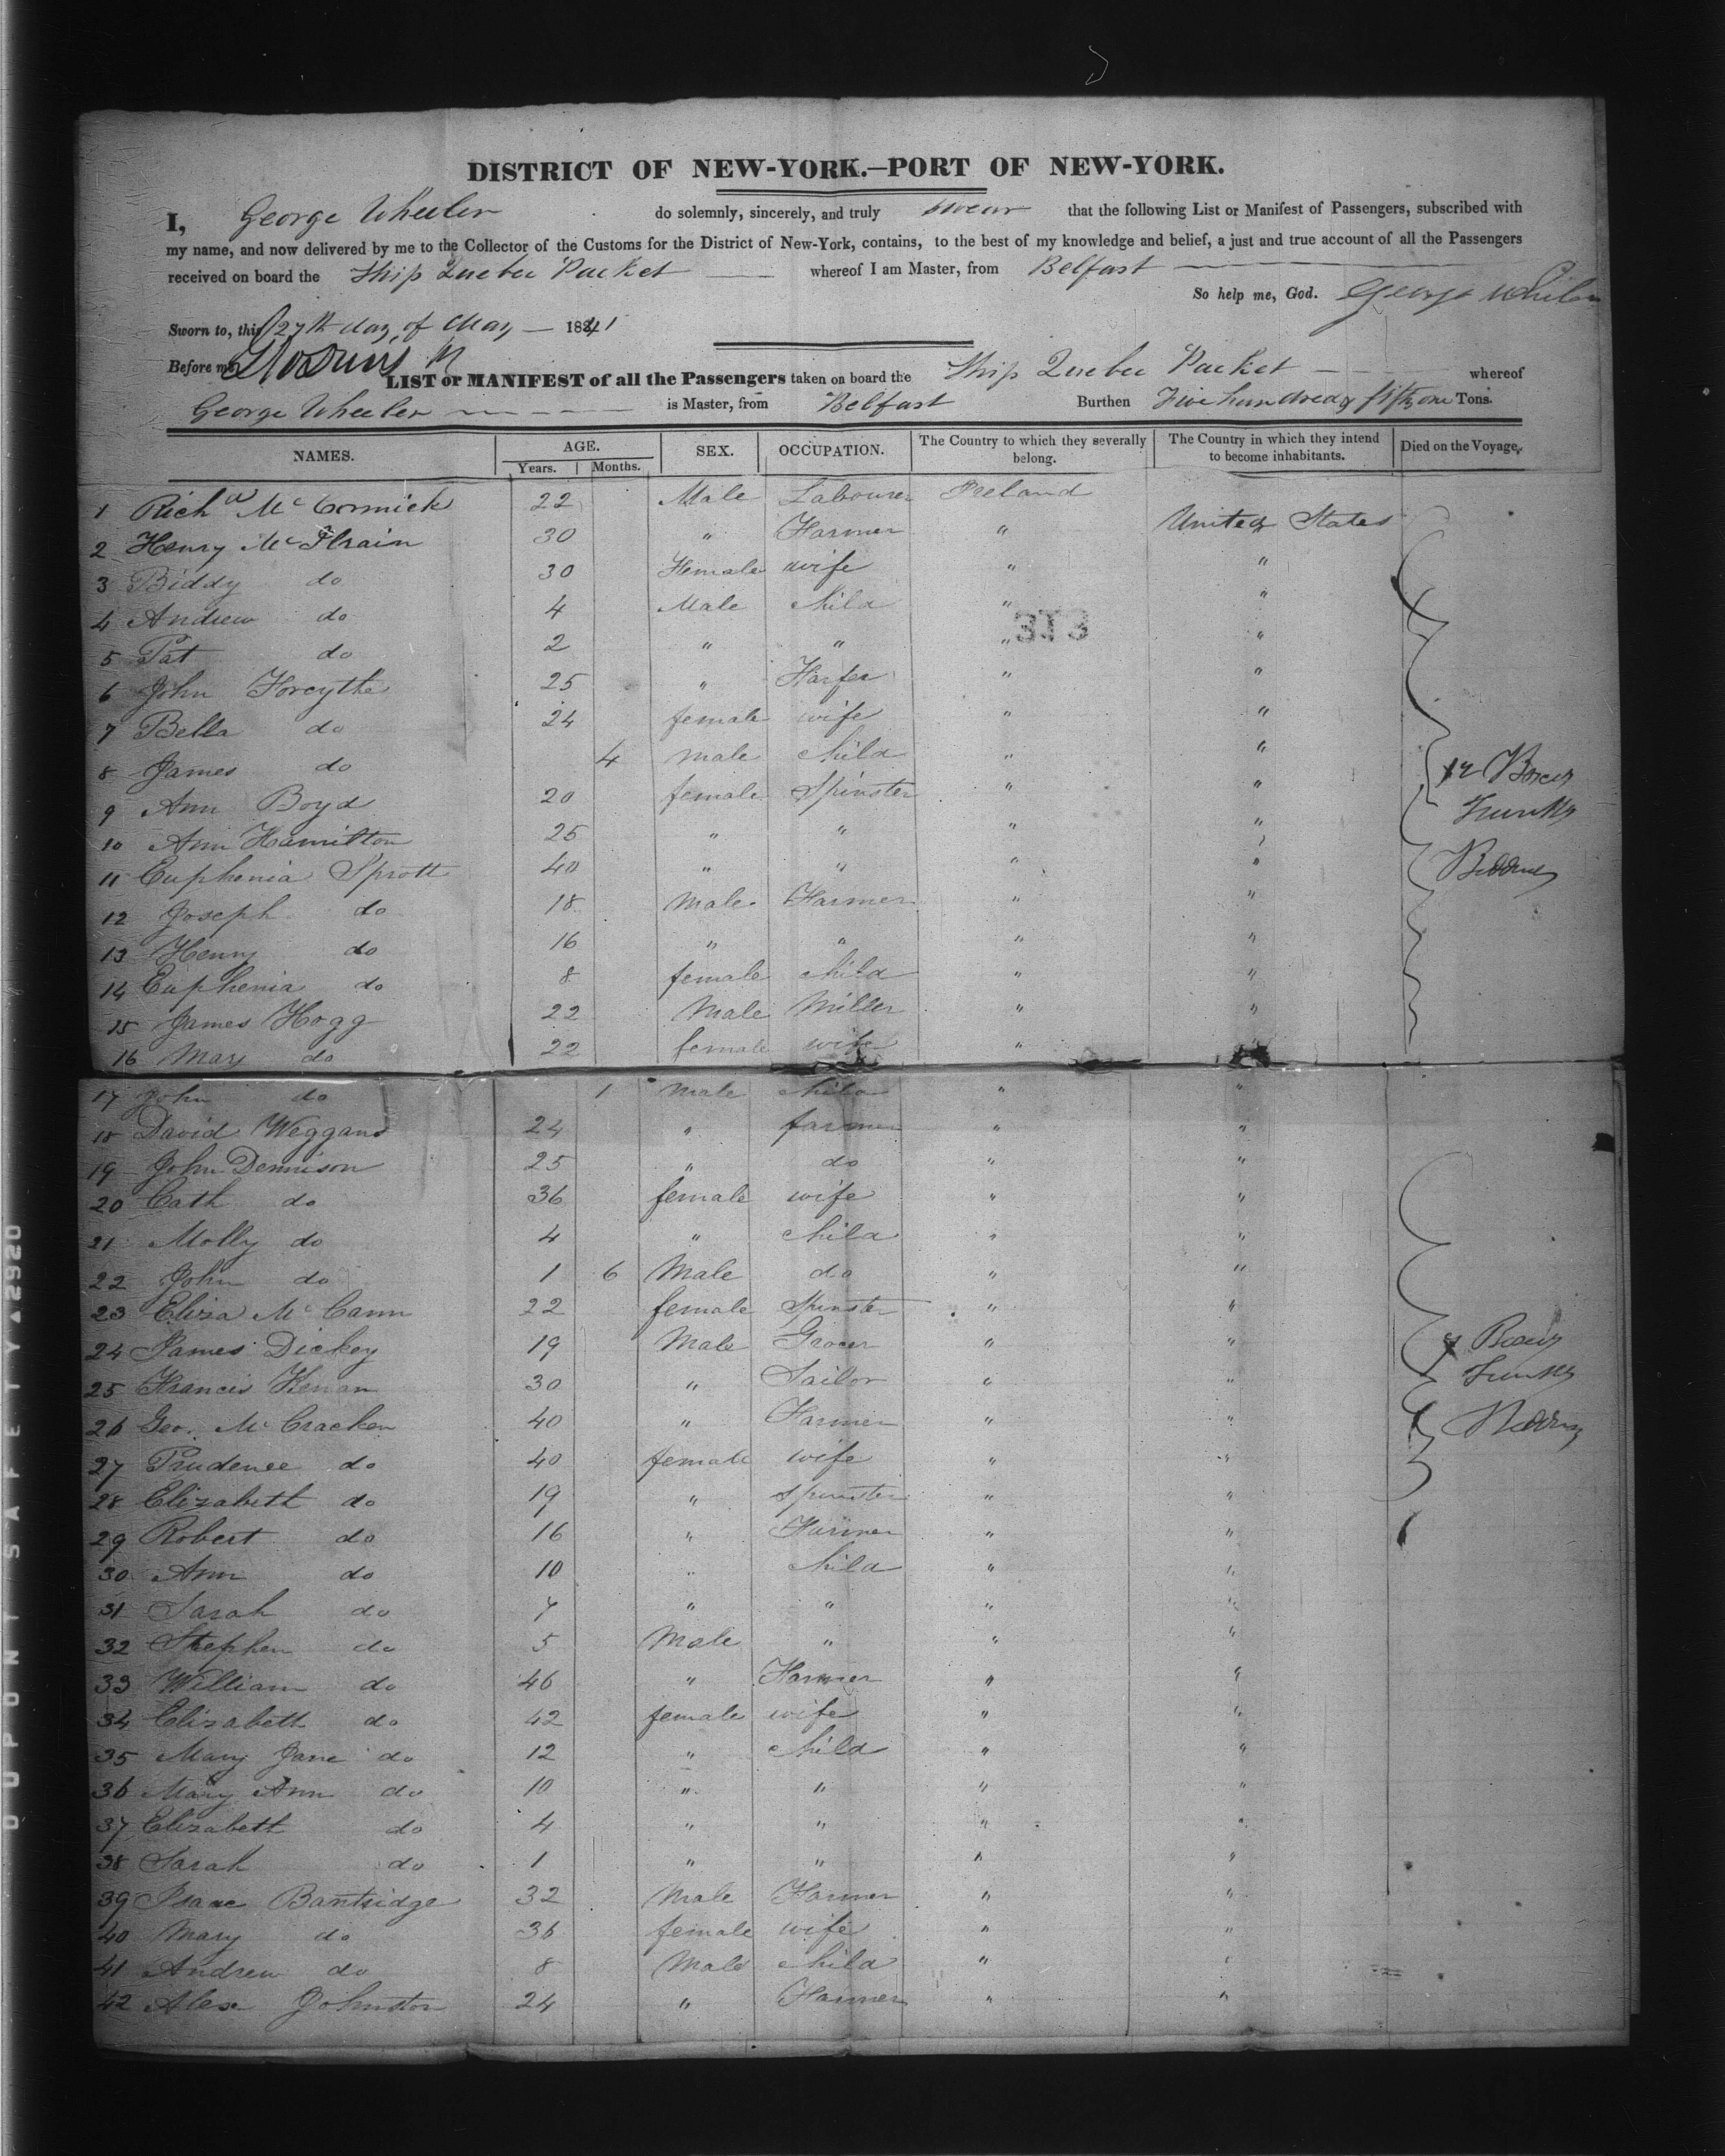 DISTRICT OF NEW-YORK.—PORT OF NEW-YORK.
I, George Wheeler do solemnly, sincerely, and truly swear that the following List or Manifest of Passengers, subscribed with
my name, and now delivered by me to the Collector of the Customs for the District of New-York, contains, to the best of my knowledge and belief, a just and true account of all the Passengers
received on board the Ship Quebec Packet whereof I am Master, from Belfast
So help me, God. George Wheeler
Sworn to, this 27th day of May 1841
Before me
LIST or MANIFEST of all the Passengers taken on board the Ship Quebec Packet whereof
George Wheeler is Master, from Belfast Burthen Five hundred & fifty one Tons.
NAMES. AGE. Years. Months. SEX. OCCUPATION. The Country to which they severally belong. The Country in which they intend to become inhabitants. Died on the Voyage.
1 Richd McCormick 22 Male Labourer Ireland
2 Henry McIlrain 30 " Farmer " United States
3 Biddy do 30 Female wife " "
4 Andrew do 4 Male child " "
5 Pat do 2 " " " "
6 John Forcythe 25 " " "
7 Bella do 24 female wife " "
8 James do 4 male child " "
9 Ann Boyd 20 female Spinster " "
10 Ann Hamilton 25 " " " "
11 Euphenia Sprott 40 " " " "
12 Joseph do 18 Male Farmer " "
13 Henry do 16 " " " "
14 Euphenia do 8 female child " "
15 James Hogg 22 Male Miller " "
16 Mary do 22 female wife "
17 John do 1 Male child " "
18 David Weggans 24 " farmer " "
19 John Dennison 25 " do " "
20 Cath do 36 female wife " "
21 Molly do 4 " child " "
22 John do 1 6 Male do " "
23 Eliza McCann 22 female Spinster " "
24 James Dickey 19 Male Grocer " "
25 Francis Kenan 30 " Sailor " "
26 Geo. McCracken 40 " Farmer " "
27 Prudence do 40 female wife " "
28 Elizabeth do 19 " spinster " "
29 Robert do 16 " Farmer " "
30 Ann do 10 " child " "
31 Sarah do 7 " " " "
32 Stephen do 5 Male " " "
33 William do 46 " Farmer " "
34 Elizabeth do 42 female wife " "
35 Mary Jane do 12 " child " "
36 Mary Ann do 10 " " " "
37 Elizabeth do 4 " " " "
38 Sarah do 1 " " " "
39 Isaac Bantridge 32 Male Farmer " "
40 Mary do 36 female wife " "
41 Andrew do 8 Male child " "
42 Alex Johnston 24 " Farmer " "
DUPONT SAFETY ▲ 2920